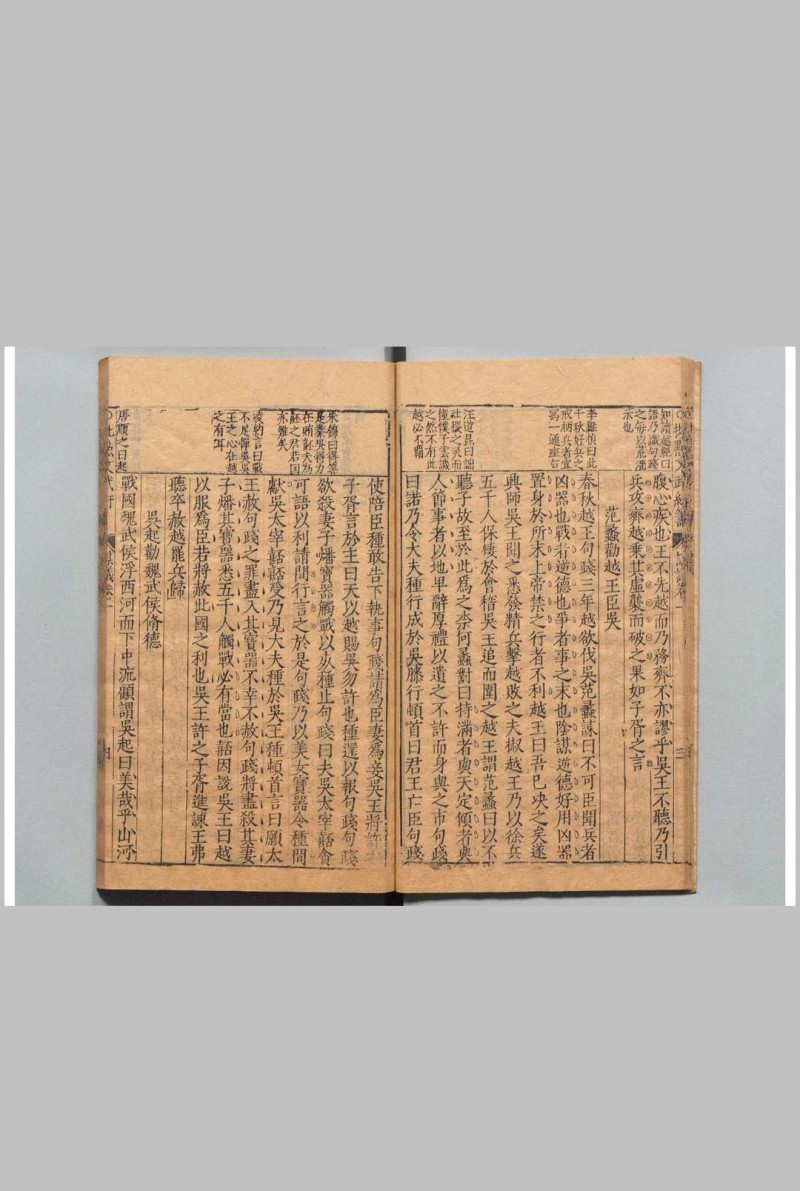 腹心疾也王不先越而乃務齊不亦謬乎吳王不聽乃引
兵攻齊越乘其虛襲而破之果如子胥之言
范蠡勸越王臣吳
春秋越王句踐三年越欲伐吳范蠡諫曰不可臣聞兵者
凶器也戰者逆德也爭者事之末也陰謀逆德好用凶器
置身於所末上帝禁之行者不利越王曰吾已決之矣遂
興師吳王聞之悉發精兵擊越敗之夫椒越王乃以餘兵
五千人保棲於會稽吳王追而圍之越王謂范蠡曰以不
聽子故至於此為之柰何蠡對曰持滿者與天定傾者與
人節事者以地卑辭厚禮以遺之不許而身與之市句踐
曰諾乃令大夫種行成於吳膝行頓首曰君王亡臣句踐
李維禎曰此
千秋好兵之
戒柄兵者宜
寫一通座右
汪道昆曰詘
社稷之灵而
僮僕于雲識
之然不有此
越必不霸
使陪臣種敢告下執事句踐請為臣妻為妾吳王將許
子胥言於王曰天以越賜吳勿許也種還以報句踐句踐
欲殺妻子燔寶器觸戰以死種止句踐曰夫吳太宰嚭貪
可誘以利請間行言之於是句踐乃以美女寶器令種間
獻吳太宰嚭嚭受乃見大夫種於吳王種頓首言曰願大
王赦句踐之罪盡入其寶器不幸不赦句踐將盡殺其妻
子燔其寶器悉五千人觸戰必有當也嚭因說吳王曰越
以服為臣若將赦此國之利也吳王許之子胥進諫王弗
聽卒赦越罷兵歸
吳起勸魏武侯脩德
戰國魏武侯浮西河而下中流顧謂吳起曰美哉乎山河
凌約言曰戰
不足憚吳吳
王之心在越
之有耳
唐順之曰起